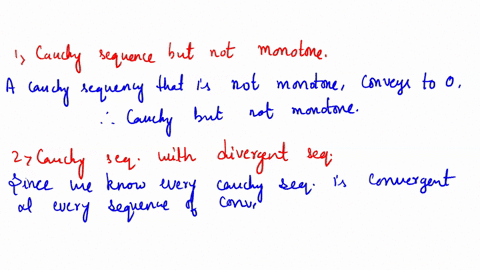 1, Cauchy sequence but not monotone.
A cauchy sequency that is not monotone, Conveys to 0.
∴ Cauchy but not monotone.
2, Cauchy seq. with divergent seq.
Since we know every cauchy seq. is convergent
every sequence of conv